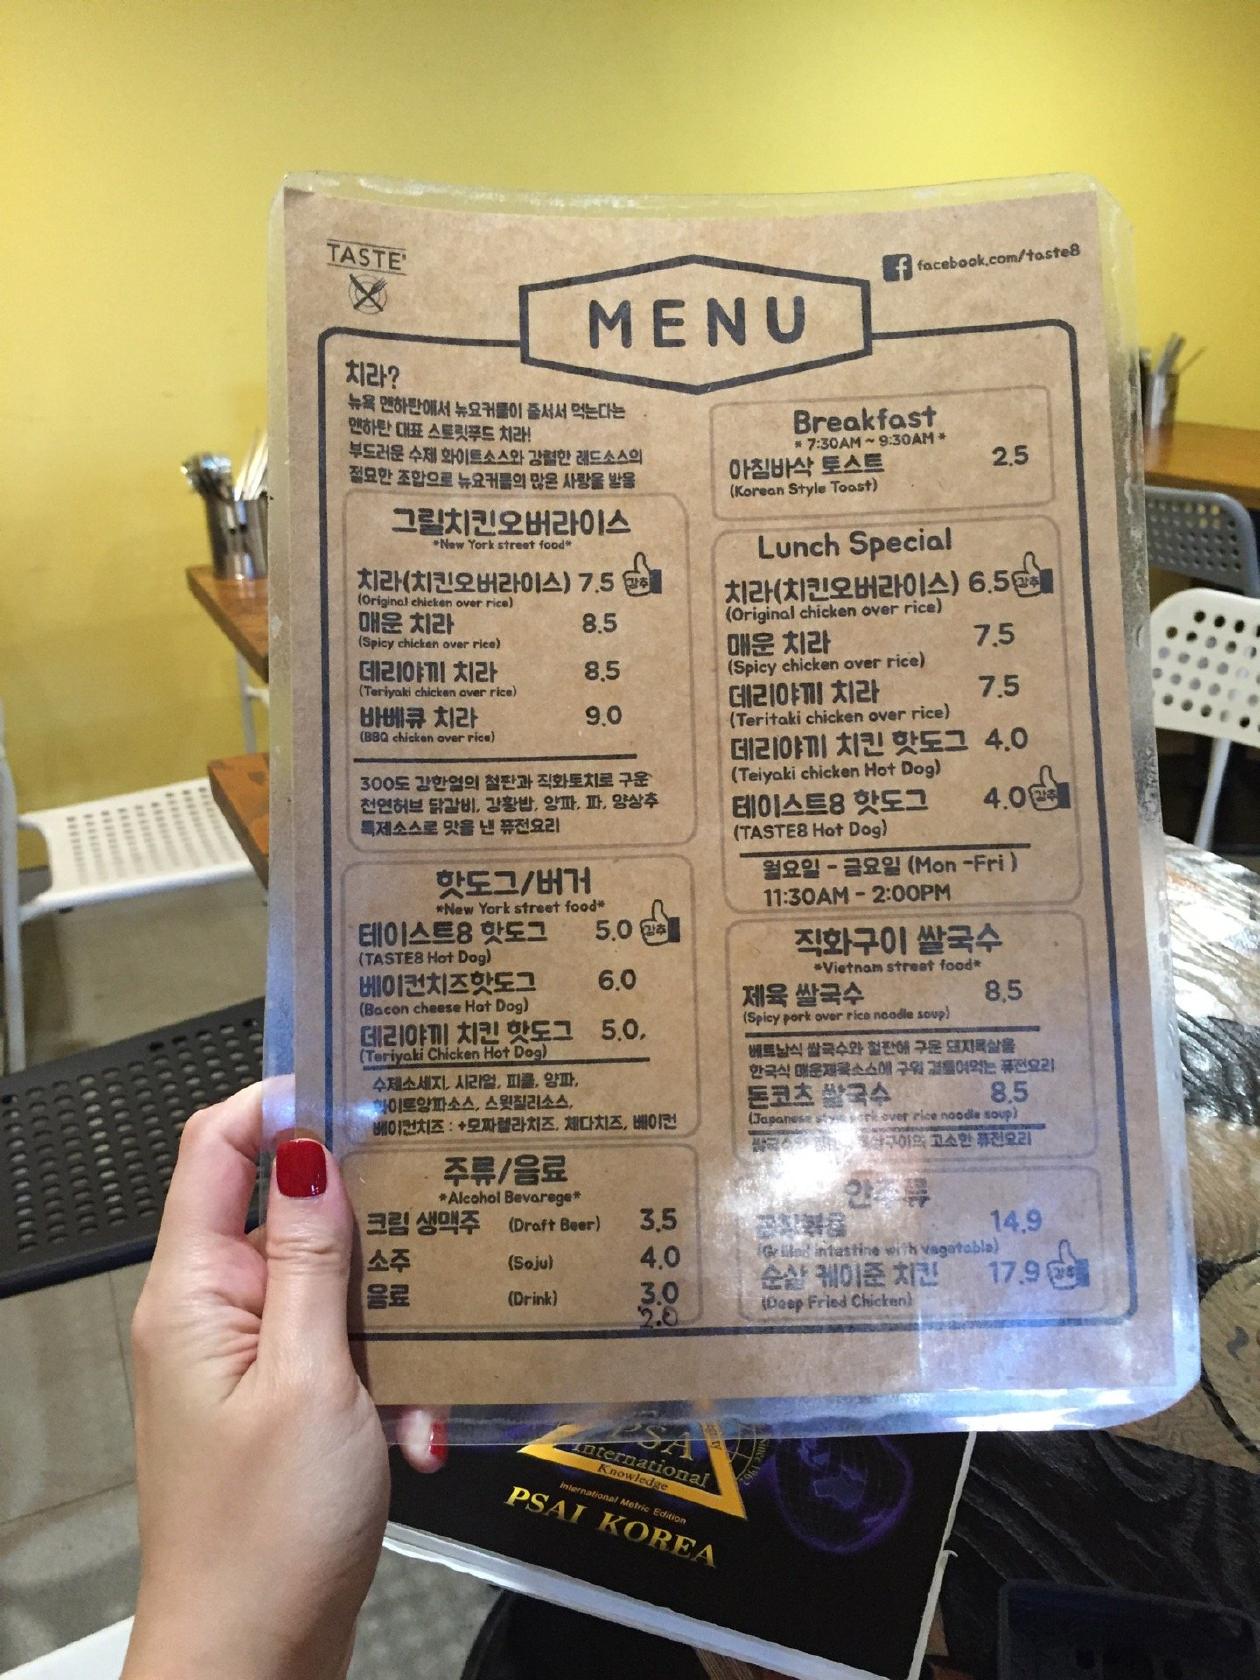 TASTE8
facebook.com/taste8
MENU
치라?
뉴욕 맨하탄에서 뉴요커들이 줄서서 먹는다는
맨하탄 대표 스트릿푸드 치라!
부드러운 수제 화이트소스와 강렬한 레드소스의
절묘한 조합으로 뉴요커들의 많은 사랑을 받음
그릴치킨오버라이스
*New York street food*
치라(치킨오버라이스) 7.5 강추
(Original chicken over rice)
매운 치라 8.5
(Spicy chicken over rice)
데리야끼 치라 8.5
(Teriyaki chicken over rice)
바베큐 치라 9.0
(BBQ chicken over rice)
300도 강한열의 철판과 직화토치로 구운
천연허브 닭갈비, 강황밥, 양파, 파, 양상추
특제소스로 맛을 낸 퓨전요리
핫도그/버거
*New York street food*
테이스트8 핫도그 5.0 강추
(TASTE8 Hot Dog)
베이컨치즈핫도그 6.0
(Bacon cheese Hot Dog)
데리야끼 치킨 핫도그 5.0.
(Teriyaki Chicken Hot Dog)
수제소세지, 시리얼, 피클, 양파,
화이트양파소스, 스윗칠리소스,
베이컨치즈 : +모짜렐라치즈, 체다치즈, 베이컨
주류/음료
*Alcohol Bevarege*
크림 생맥주 (Draft Beer) 3.5
소주 (Soju) 4.0
음료 (Drink) 3.0
2.0
Breakfast
* 7:30AM ~ 9:30AM *
아침바삭 토스트 2.5
(Korean Style Toast)
Lunch Special
치라(치킨오버라이스) 6.5 강추
(Original chicken over rice)
매운 치라 7.5
(Spicy chicken over rice)
데리야끼 치라 7.5
(Teritaki chicken over rice)
데리야끼 치킨 핫도그 4.0
(Teiyaki chicken Hot Dog)
테이스트8 핫도그 4.0 강추
(TASTE8 Hot Dog)
월요일 - 금요일 (Mon -Fri )
11:30AM - 2:00PM
직화구이 쌀국수
*Vietnam street food*
제육 쌀국수 8.5
(Spicy pork over rice noodle soup)
베트남식 쌀국수와 철판에 구운 돼지목살을
한국식 매운제육소스에 구워 곁들여먹는 퓨전요리
돈코츠 쌀국수 8.5
(Japanese style pork over rice noodle soup)
고소한 퓨전요리
안주류
14.9
(Grilled intestine with vegetable)
순살 케이준 치킨 17.9 강추
(Deep Fried Chicken)
PSA
International
Knowledge
SINCE 1962
International Metric Edition
PSAI KOREA